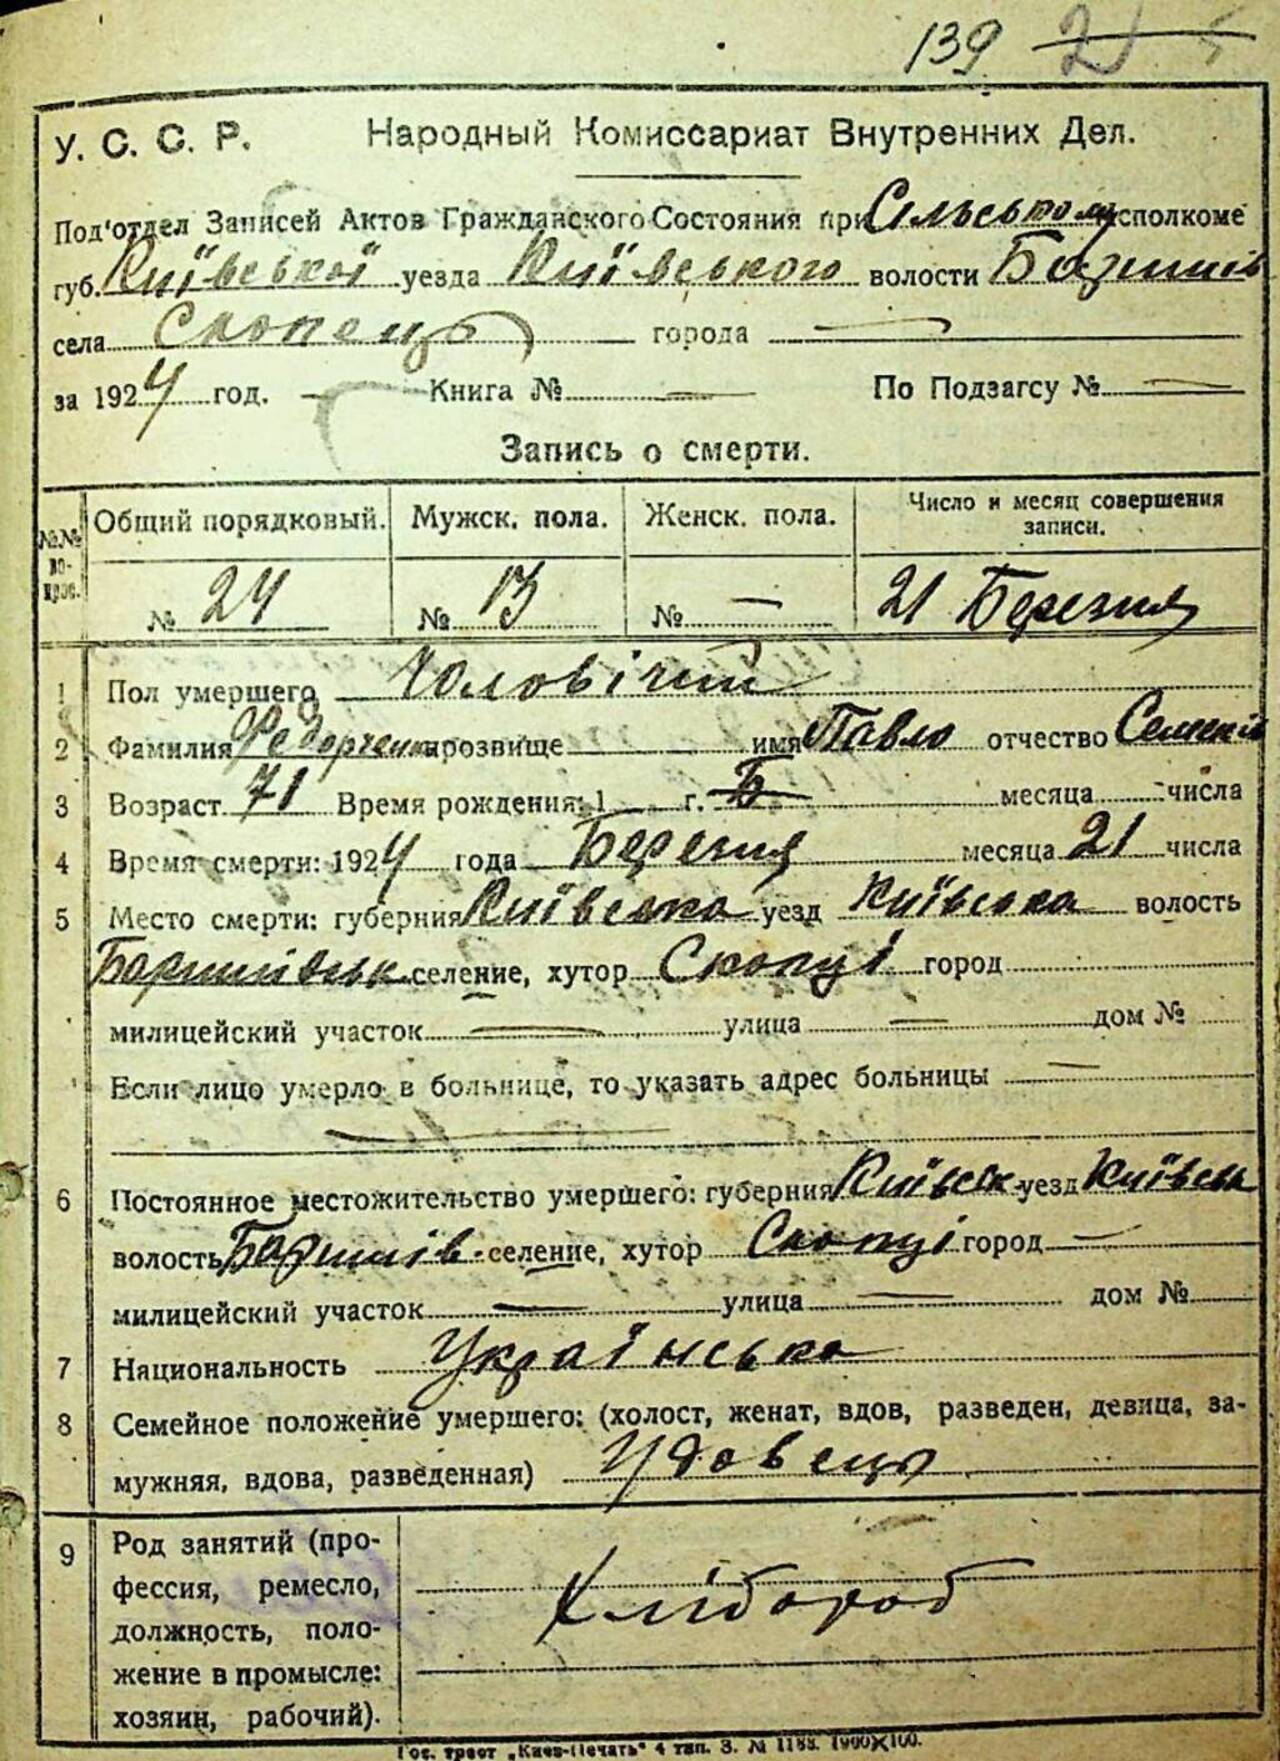 139 2
У. С. С. Р. Народный Комиссариат Внутренних Дел.
Под'отдел Записей Актов Гражданского Состояния при Сільському исполкоме
губ. Київської уезда Київського волости Баришів
села Скопець города —
за 1924 год. Книга № — По Подзагсу № —
Запись о смерти.
№№ вопрос. Общий порядковый. Мужск. пола. Женск. пола. Число и месяц совершения записи.
№ 24 № 13 № — 21 Березня
1 Пол умершего Чоловічий
2 Фамилия Федорченко прозвище имя Павло отчество
3 Возраст 71 Время рождения: 1 г. Б месяца числа
4 Время смерти: 1924 года Березня месяца 21 числа
5 Место смерти: губерния Київська уезд Київська волость
Баришівськ селение, хутор Скопці город
милицейский участок — улица — дом №
Если лицо умерло в больнице, то указать адрес больницы —
6 Постоянное местожительство умершего: губерния Київськ уезд Київськ
волость Баришів. селение, хутор Скопці город —
милицейский участок — улица — дом №
7 Национальность Українська
8 Семейное положение умершего: (холост, женат, вдов, разведен, девица, за-
мужняя, вдова, разведенная) Удовець
9 Род занятий (про-
фессия, ремесло,
должность, поло-
жение в промысле:
хозяин, рабочий).
Хлібороб
Гос. трест „Киев-Печать" 4 тип. З. № 1188. 1900×100.